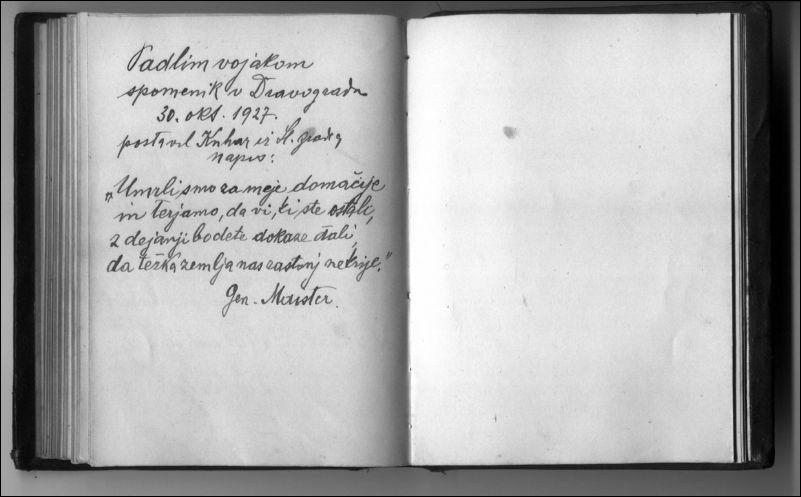 Padlim vojakom
spomenik v Dravogradu
30. okt. 1927.
postavil iz
napis:
„Umrli smo za meje domačije
in terjamo, da vi, ki ste ostali,
z dejanji bodete dokaze dali,
da težka zemlja nas zastonj ne krije."
Gen. Maister.